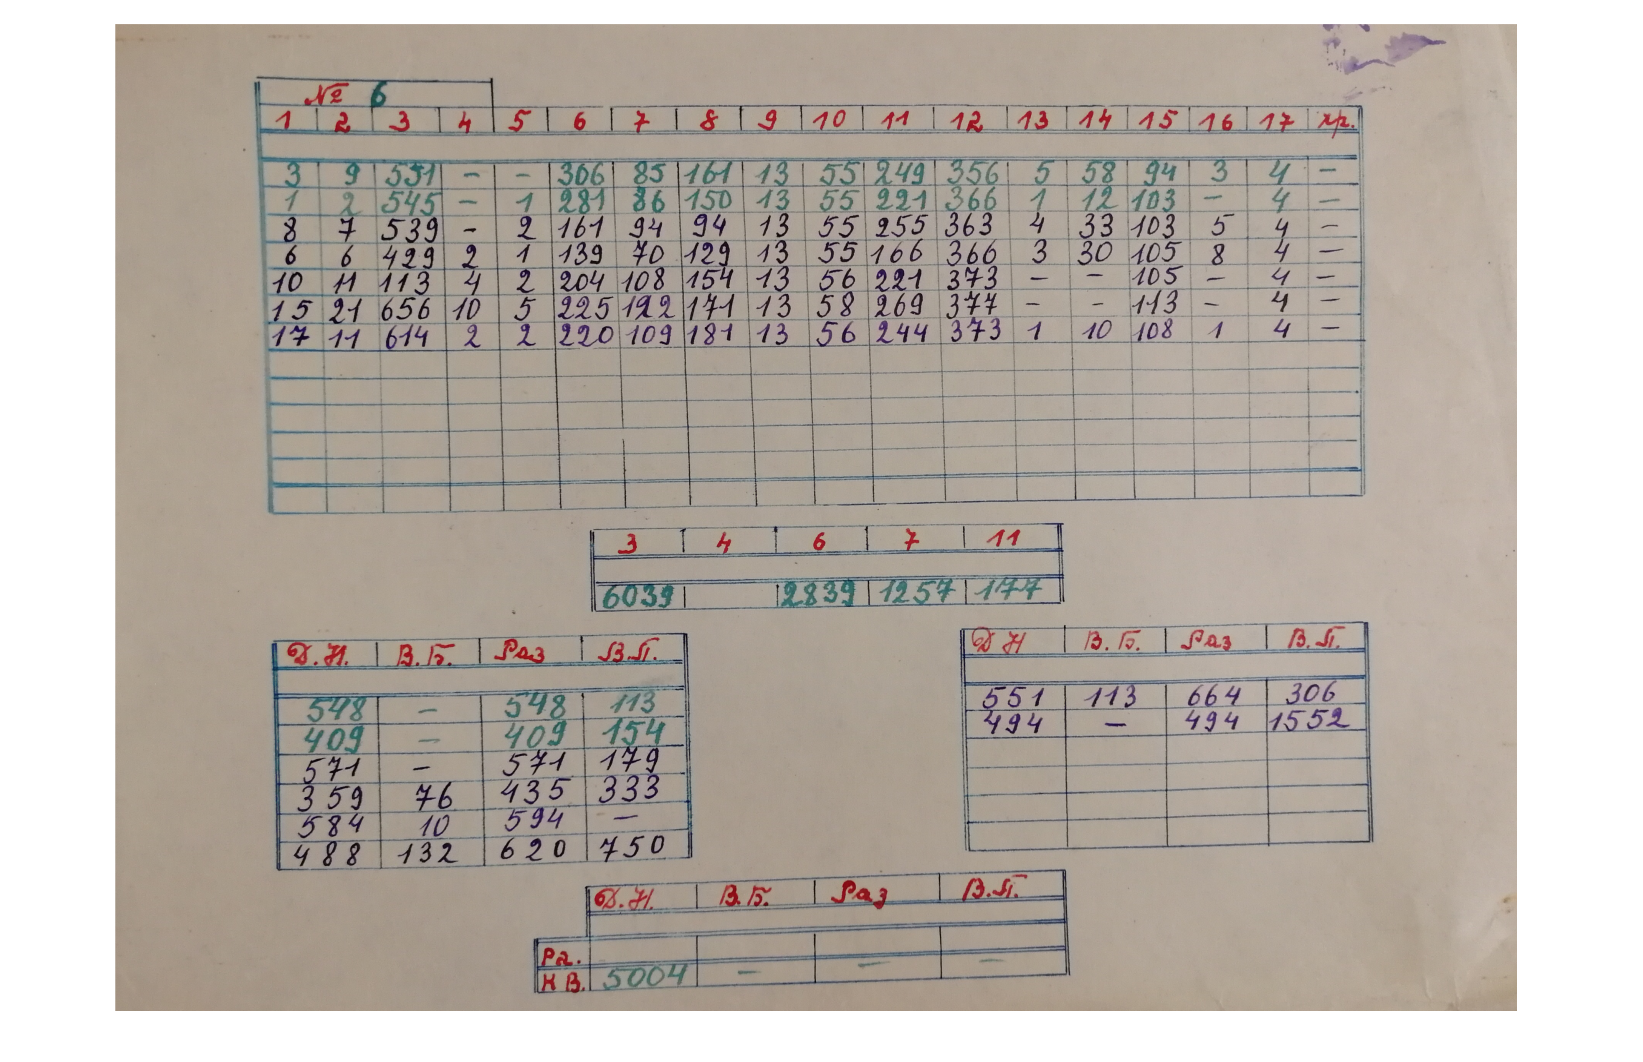 № 6
1 2 3 4 5 6 7 8 9 10 11 12 13 14 15 16 17 пр.
3 9 551 - - 306 85 161 13 55 249 356 5 58 94 3 4 -
1 2 545 - 1 281 86 150 13 55 221 366 1 12 103 - 4 -
8 7 539 - 2 161 94 94 13 55 255 363 4 33 103 5 4 -
6 6 429 2 1 139 70 129 13 55 166 366 3 30 105 8 4 -
10 11 113 4 2 204 108 154 13 56 221 373 - - 105 - 4 -
15 21 656 10 5 225 192 171 13 58 269 377 - - 113 - 4 -
17 11 614 2 2 220 109 181 13 56 244 373 1 10 108 1 4 -
3 4 6 7 11
6039 2839 1257 177
Д.Н. В.Б. Раз В.П.
548 - 548 113
409 - 409 154
571 - 571 179
359 76 435 333
584 10 594 -
488 132 620 750
Д Н В.Б. Раз В.П.
551 113 664 306
494 - 494 1552
Д.Н. В.Б. Раз В.П.
Рг.
КВ. 5004 - - -